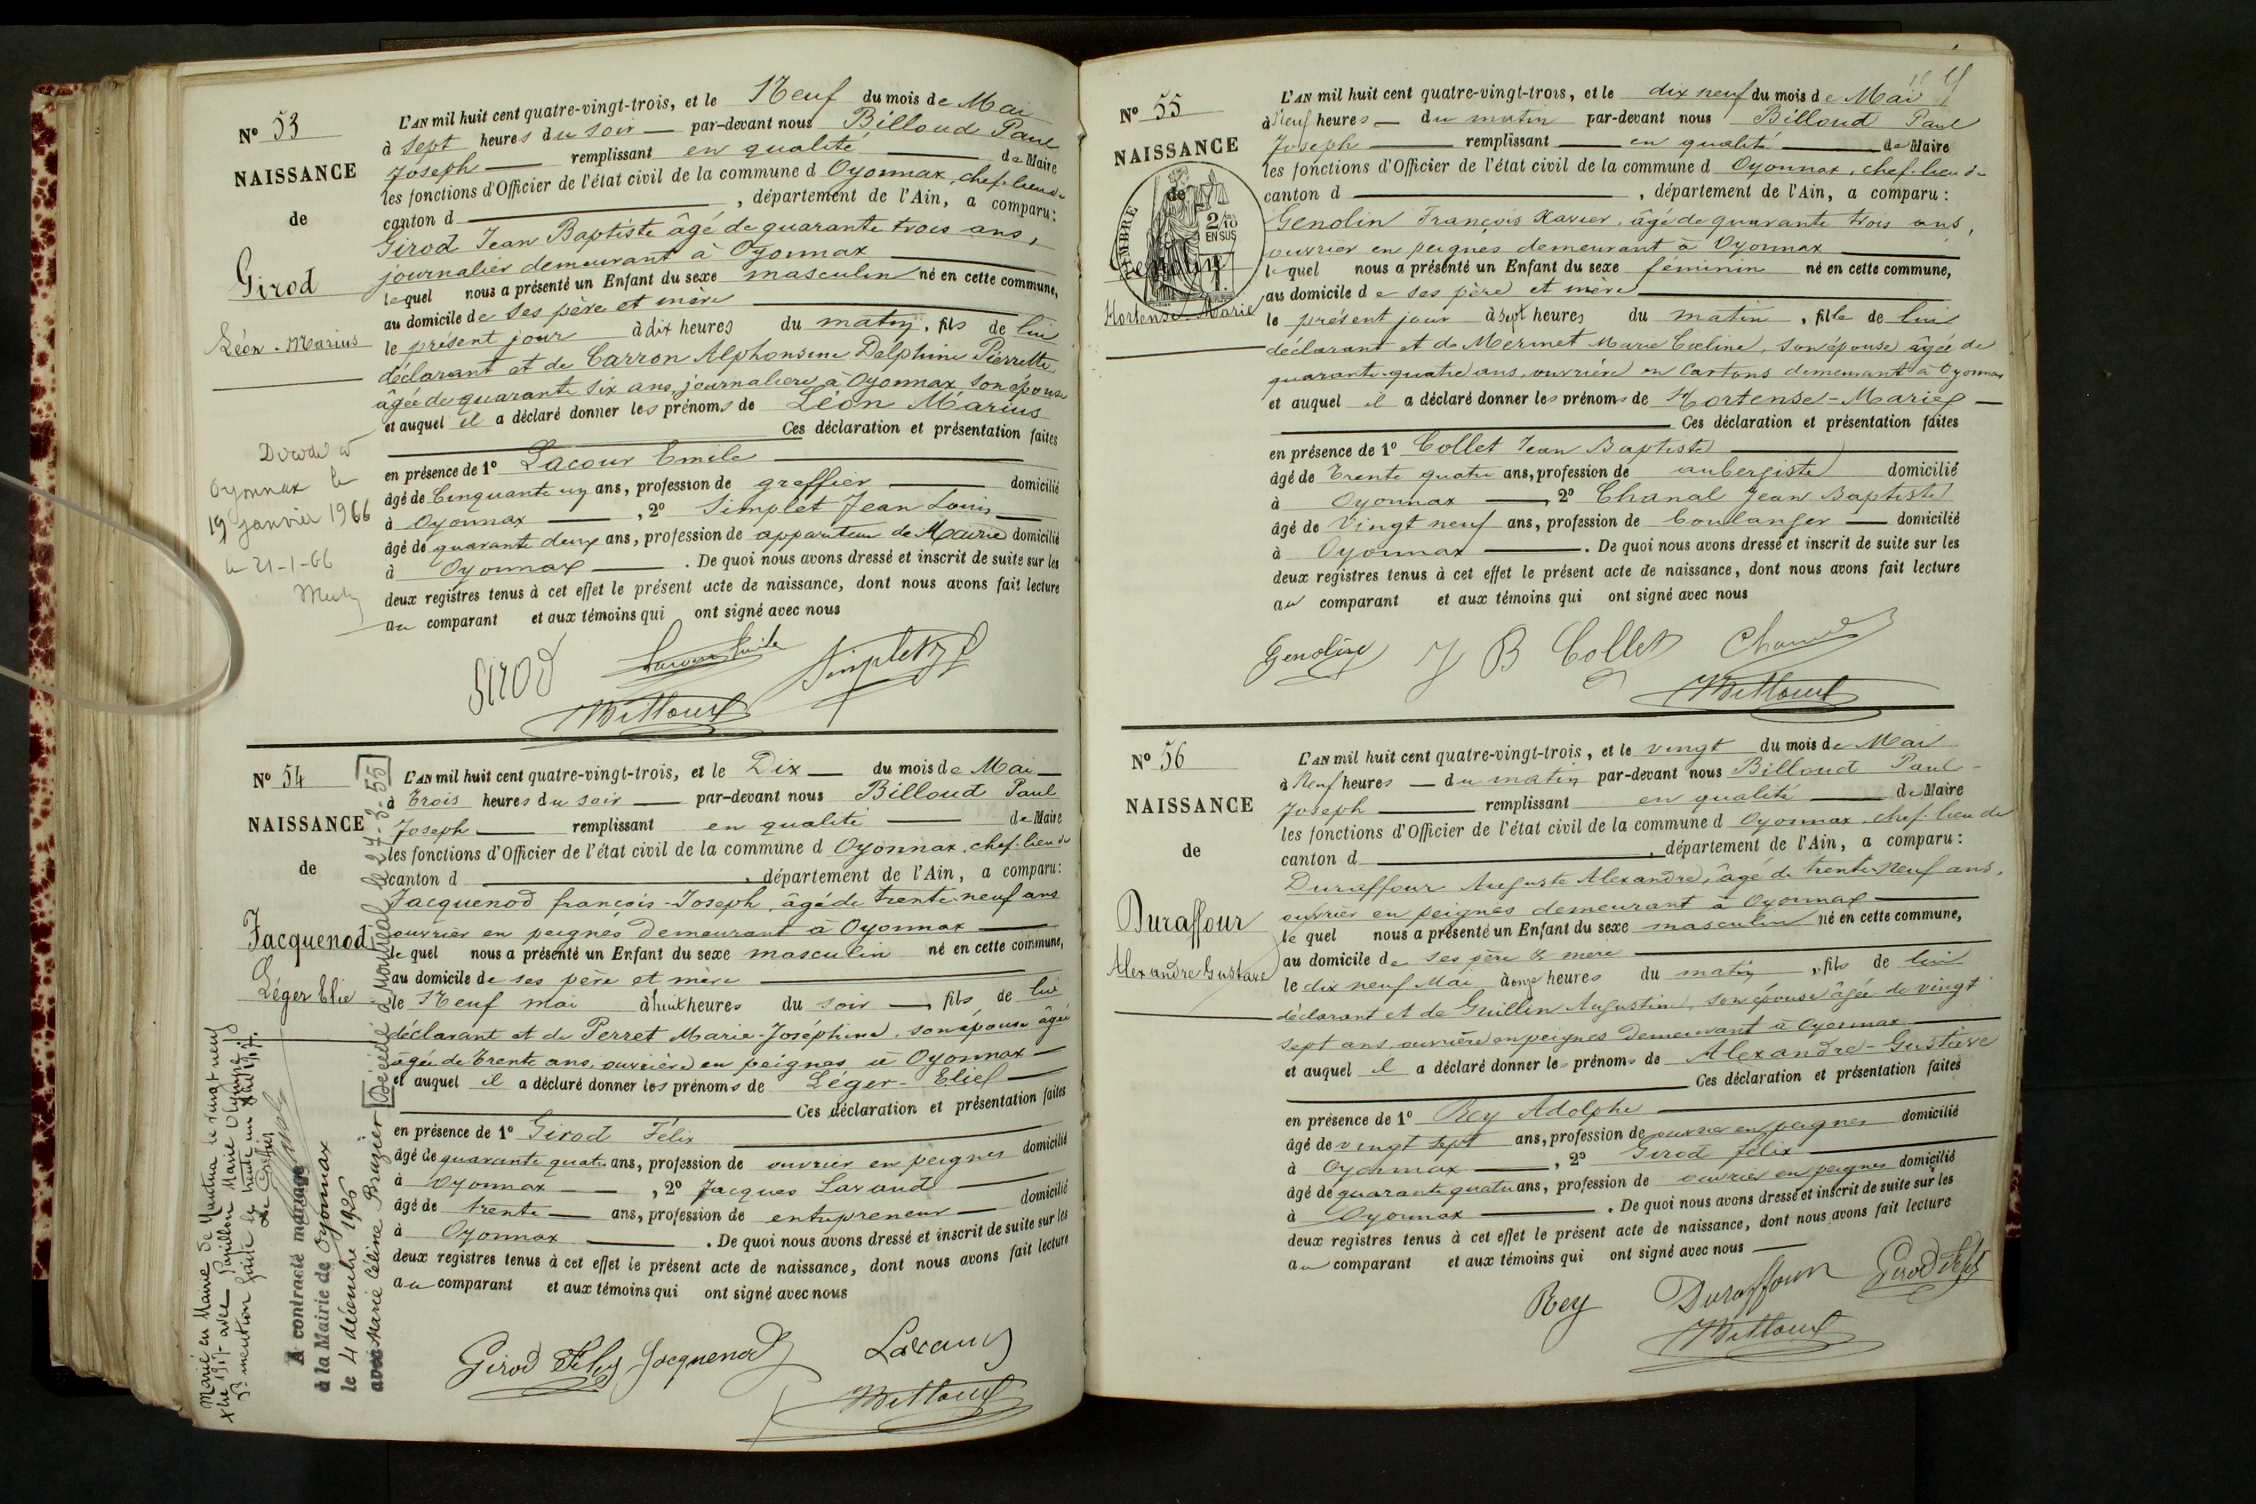 N° 53
NAISSANCE
de
Girod
Léon-Marius
Décédé à
Oyonnax le
19 Janvier 1966
le 21-1-66
L'AN mil huit cent quatre-vingt-trois, et le Neuf du mois de Mai
à Sept heures du soir par-devant nous Billoud Paul
Joseph remplissant en qualité de Maire
les fonctions d'Officier de l'état civil de la commune d Oyonnax, chef-lieu de
canton d , département de l'Ain, a comparu:
Girod Jean Baptiste âgé de quarante trois ans,
journalier demeurant à Oyonnax
lequel nous a présenté un Enfant du sexe masculin né en cette commune,
au domicile de ses père et mère
le présent jour à dix heures du matin, fils de lui
déclarant et de Carron Alphonsine Delphine Pierrette
âgée de quarante six ans, journaliere à Oyonnax son épouse
et auquel il a déclaré donner les prénoms de Léon Marius
Ces déclaration et présentation faites
en présence de 1° Lacour Emile
âgé de Cinquante un ans, profession de greffier domicilié
à Oyonnax , 2° Simplet Jean Louis
âgé de quarante deux ans, profession de appariteur de Mairie domicilié
à Oyonnax . De quoi nous avons dressé et inscrit de suite sur les
deux registres tenus à cet effet le présent acte de naissance, dont nous avons fait lecture
au comparant et aux témoins qui ont signé avec nous
Girod Lacour Emile Simplet J L
Billoud
N° 54
NAISSANCE
de
Jacquenod
Léger Elie
Marié en Mairie de Nantua le vingt neuf
Xbre 1917 avec Papillon Marie Olympe
Dt mention faite le trente un Xbre 1917.
Le Greffier
A contracté mariage
à la Mairie de Oyonnax
le 4 décembre 1926
avec Marie Céline Brazier
Décédé à Montréal le 27-3-55
L'AN mil huit cent quatre-vingt-trois, et le Dix du mois de Mai
à Trois heures du soir par-devant nous Billoud Paul
Joseph remplissant en qualité de Maire
les fonctions d'Officier de l'état civil de la commune d Oyonnax, chef-lieu de
canton d , département de l'Ain, a comparu:
Jacquenod françois-Joseph, âgé de trente-neuf ans
ouvrier en peignes demeurant à Oyonnax
lequel nous a présenté un Enfant du sexe masculin né en cette commune,
au domicile de ses père et mère
le Neuf mai à huit heures du soir , fils de lui
déclarant et de Perret Marie-Joséphine, son épouse âgée
âgée de Trente ans, ouvrière en peignes à Oyonnax
et auquel il a déclaré donner les prénoms de Léger-Elie
Ces déclaration et présentation faites
en présence de 1° Girod Félix
âgé de quarante quatre ans, profession de ouvrier en peignes domicilié
à Oyonnax , 2° Jacques Lavaud
âgé de trente ans, profession de entrepreneur domicilié
à Oyonnax . De quoi nous avons dressé et inscrit de suite sur les
deux registres tenus à cet effet le présent acte de naissance, dont nous avons fait lecture
au comparant et aux témoins qui ont signé avec nous
Girod Félix Jacquenod Lavaud
Billoud
N° 55
NAISSANCE
de
TIMBRE
2/10
EN SUS
Genolin
Hortense-Marie
L'AN mil huit cent quatre-vingt-trois, et le dix neuf du mois de Mai
à Neuf heures du matin par-devant nous Billoud Paul
Joseph remplissant en qualité de Maire
les fonctions d'Officier de l'état civil de la commune d Oyonnax, chef-lieu de
canton d , département de l'Ain, a comparu:
Genolin François Xavier, âgé de quarante trois ans,
ouvrier en peignes demeurant à Oyonnax
lequel nous a présenté un Enfant du sexe féminin né en cette commune,
au domicile de ses père et mère
le présent jour à sept heures du matin , fille de lui
déclarant et de Mermet Marie Coeline, son épouse âgée de
quarante-quatre ans, ouvrière en Cartons demeurant à Oyonnax
et auquel il a déclaré donner les prénoms de Hortense-Marie
Ces déclaration et présentation faites
en présence de 1° Collet Jean Baptiste
âgé de Trente quatre ans, profession de aubergiste domicilié
à Oyonnax , 2° Chanal Jean Baptiste
âgé de Vingt neuf ans, profession de boulanger domicilié
à Oyonnax . De quoi nous avons dressé et inscrit de suite sur les
deux registres tenus à cet effet le présent acte de naissance, dont nous avons fait lecture
au comparant et aux témoins qui ont signé avec nous
Genolin J B Collet Chanal
Billoud
N° 56
NAISSANCE
de
Duraffour
Alexandre Gustave
L'AN mil huit cent quatre-vingt-trois, et le vingt du mois de Mai
à Neuf heures du matin par-devant nous Billoud Paul-
Joseph remplissant en qualité de Maire
les fonctions d'Officier de l'état civil de la commune d Oyonnax, chef-lieu de
canton d , département de l'Ain, a comparu:
Duraffour Auguste Alexandre, âgé de trente-neuf ans,
ouvrier en peignes demeurant à Oyonnax
lequel nous a présenté un Enfant du sexe masculin né en cette commune,
au domicile de ses père & mère
le dix neuf Mai à onze heures du matin , fils de lui
déclarant et de Guillin Augustine, son épouse âgée de vingt
sept ans, ouvrière en peignes demeurant à Oyonnax
et auquel il a déclaré donner les prénoms de Alexandre-Gustave
Ces déclaration et présentation faites
en présence de 1° Rey Adolphe
âgé de vingt sept ans, profession de ouvrier en peignes domicilié
à Oyonnax , 2° Girod félix
âgé de quarante quatre ans, profession de ouvrier en peignes domicilié
à Oyonnax . De quoi nous avons dressé et inscrit de suite sur les
deux registres tenus à cet effet le présent acte de naissance, dont nous avons fait lecture
au comparant et aux témoins qui ont signé avec nous
Rey Duraffour Girod Félix
Billoud